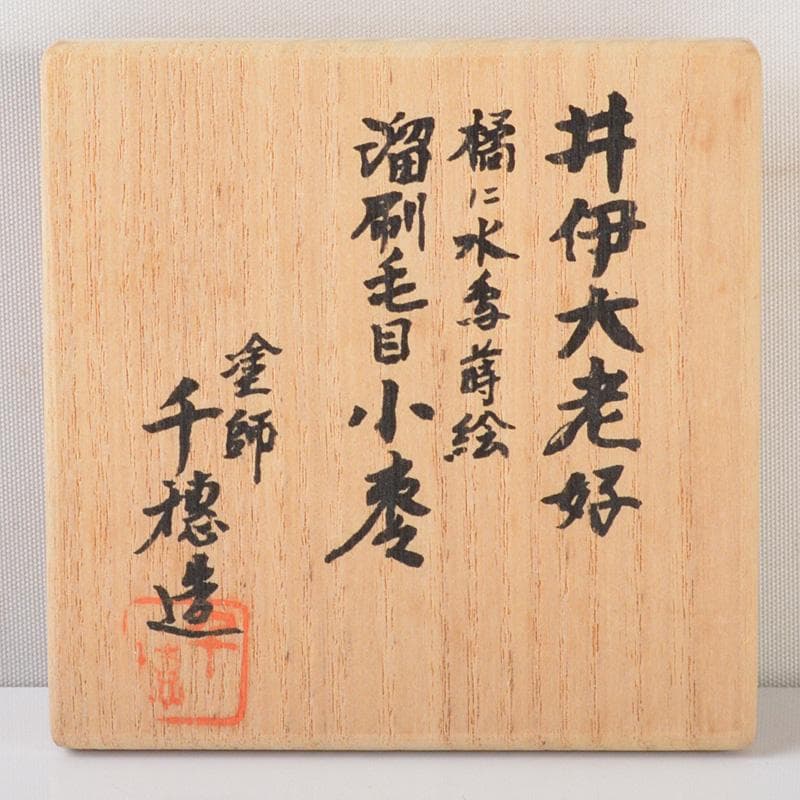 井伊大老好
橘に水香蒔絵
溜刷毛目小棗
塗師
千穂造